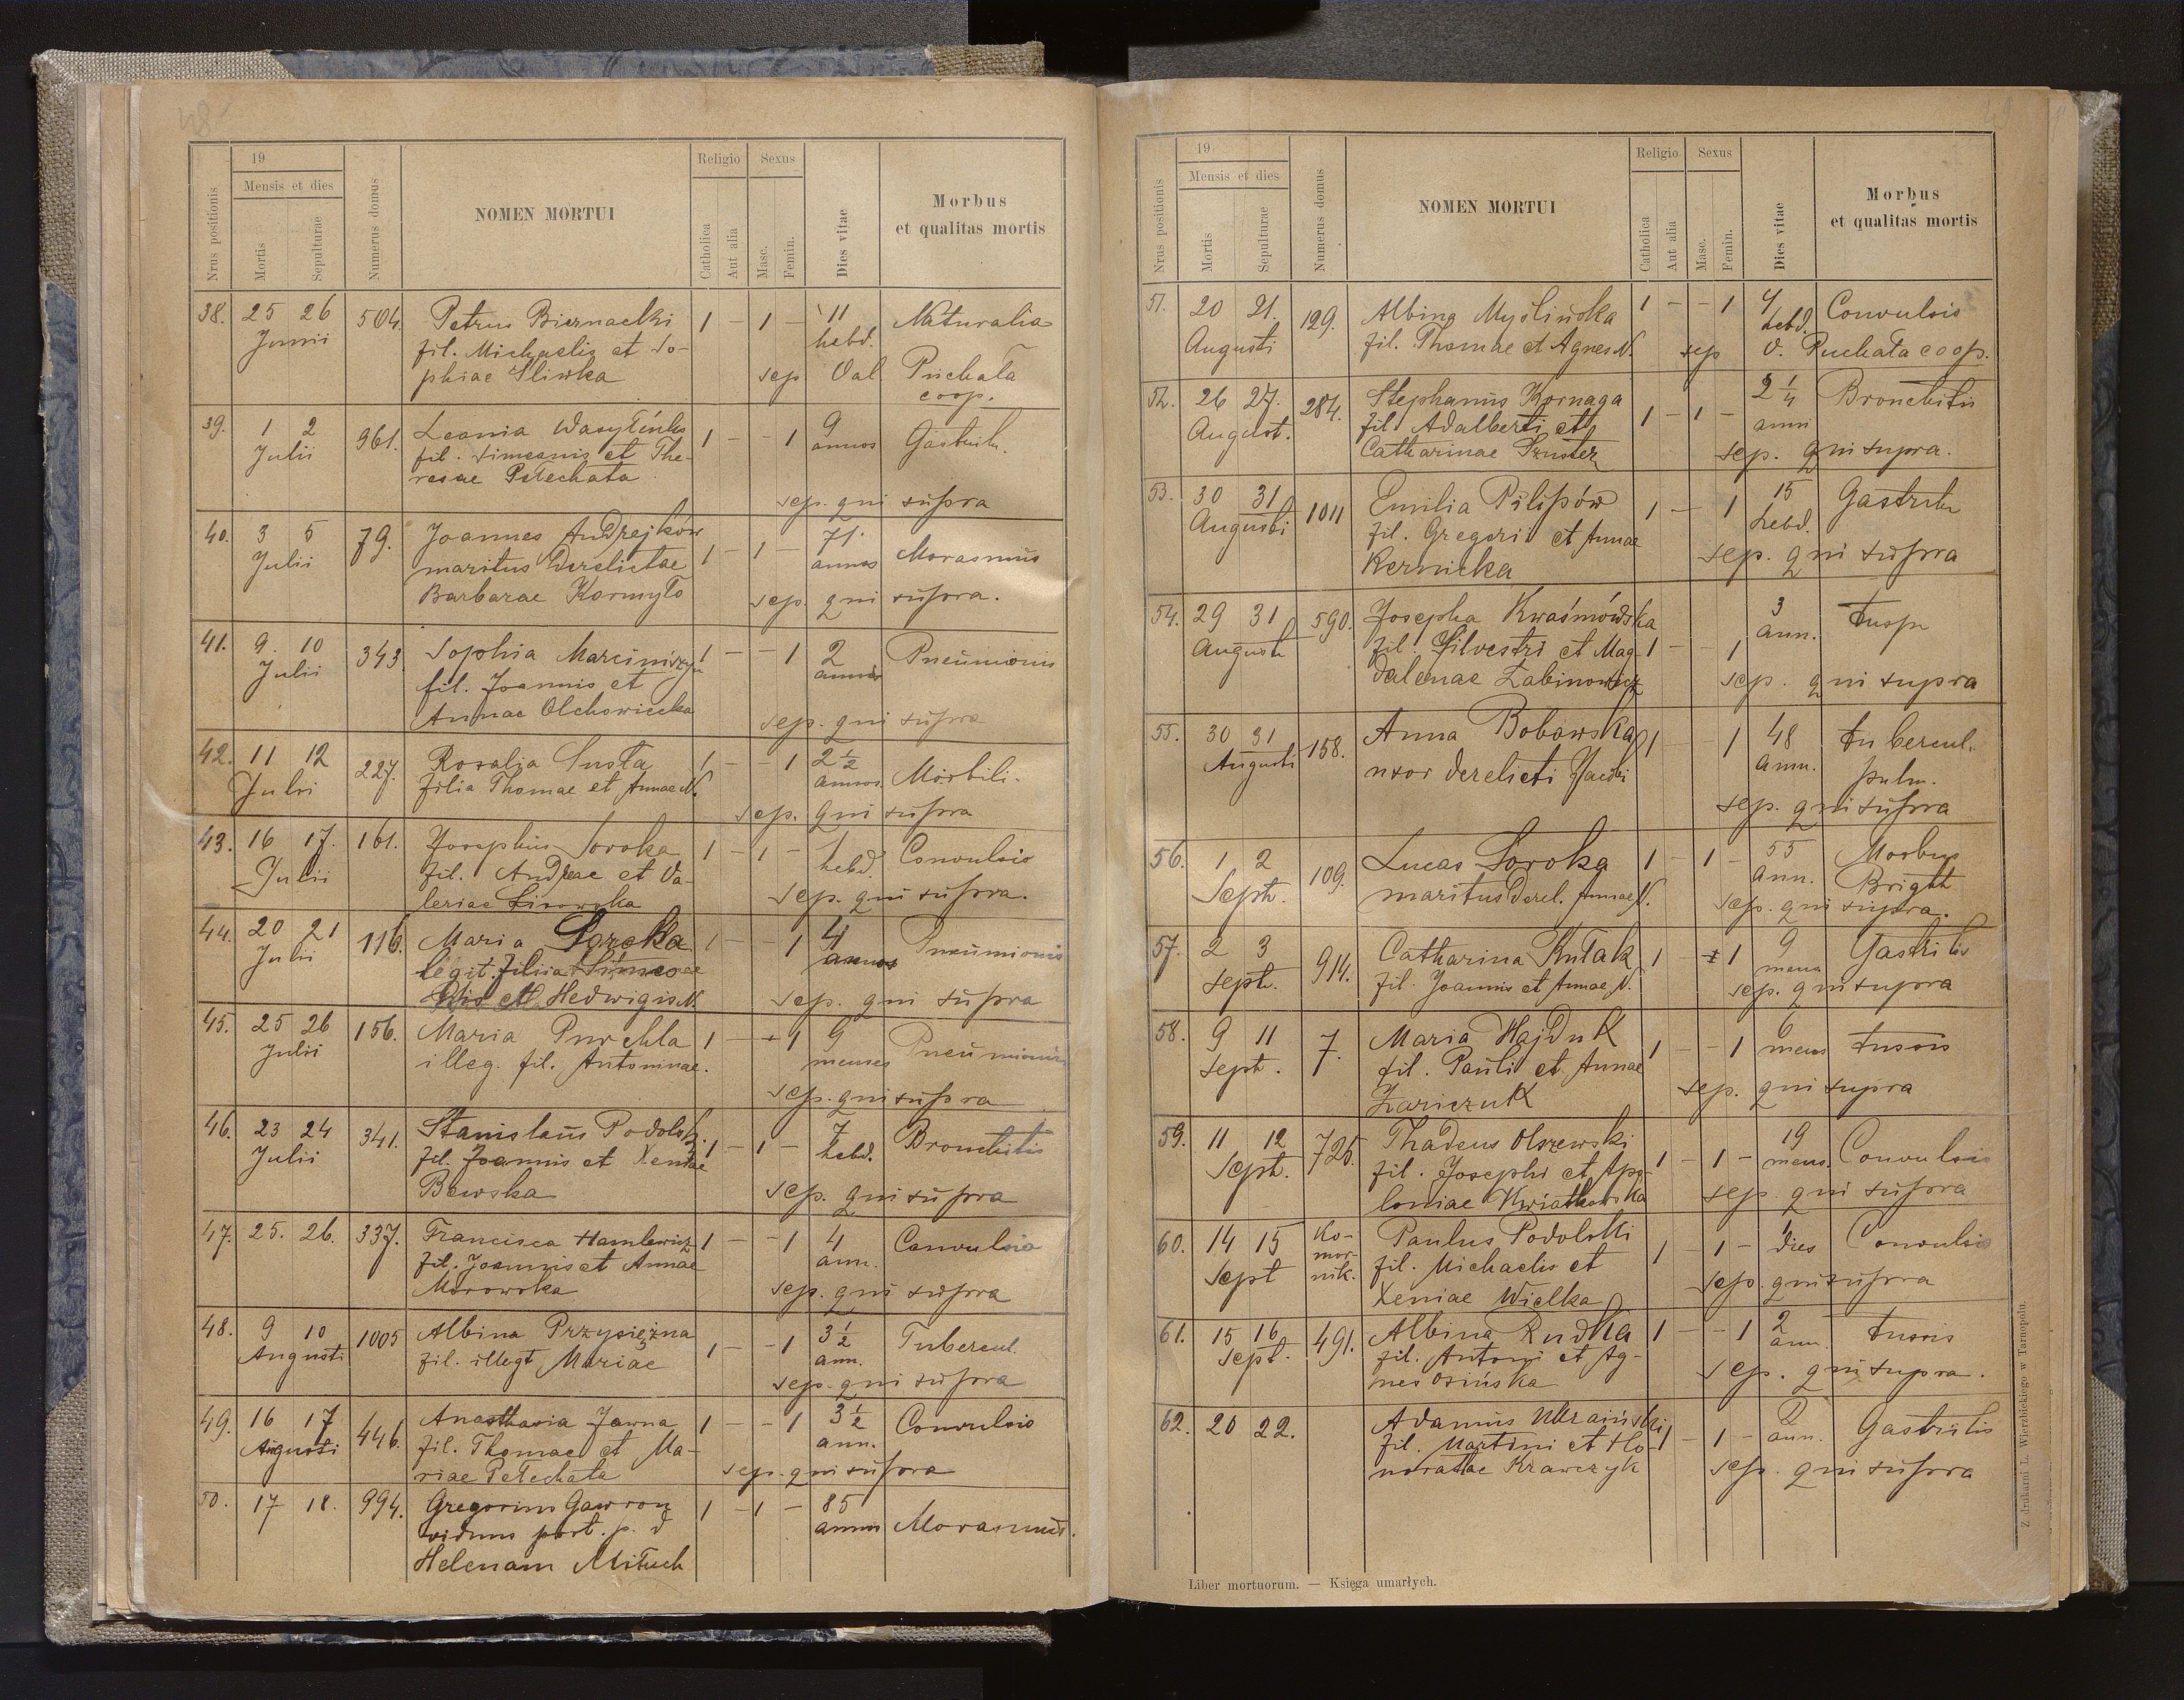 48
19
Nrus positionis
Mensis et dies
Mortis
Sepulturae
Numerus domus
NOMEN MORTUI
Religio
Catholica
Aut alia
Sexus
Masc.
Femin.
Dies vitae
Morbus
et qualitas mortis
38. 25 26 504. Petrus Biernacki 1 – 1 – 11 Naturalia
Junii fil. Michaelis et So- hebd.
phiae Śliwka sep Val Puchała
coop.
39. 1 2 961. Leonia Wasylinko 1 – – 1 9 Gastritis.
Julii fil. Simeonis et The- annos
resae Petechata
sep. qui supra
40. 3 5 79. Joannes Andrejków 1 – 1 – 71. Marasmus
Julii maritus derelictae annos
Barbarae Kormyło sep. qui supra.
41. 9. 10 343 Sophia Marciniszyn 1 – – 1 2 Pneumionis
Julii fil. Joannis et annos
Annae Olchowiecka sep. qui supra
42. 11 12 227. Rosalia Susła 1 – – 1 2 1/2 Morbili.
Julii filia Thomae et Annae N. annos
sep. qui supra
43. 16 17. 161. Josephus Soroka 1 – 1 – 1 Convulsio
Julii fil. Andreae et Va- hebd.
leriae Lisowska sep. qui supra.
44. 20 21 116. Maria Soroka 1 – – 1 4 Pneumionis
Julii legit. filiia Simeo annos
nis et Hedwigis N. sep. qui supra
45. 25 26 156. Maria Puchła 1 – – 1 9 Pneumionis
Julii illeg. fil. Antoninae. menses
sep. qui supra
46. 23 24 341. Stanislaus Podolsk. 1 – 1 – 7 Bronchitis
Julii fil. Joannis et Xeniae hebd.
Bewska sep. qui supra
47. 25. 26. 337. Francisca Hamlewicz 1 – – 1 4 Convulsio
fil. Joannis et Annae ann.
Morowska sep. qui supra
48. 9 10 1005 Albina Przysiężna 1 – – 1 3 1/2 Tubercul.
Augusti fil. illegt Mariae ann.
sep. qui supra
49. 16 17 446. Anasthasia Jawna 1 – – 1 3 1/2 Convulsio
Augusti fil. Thomae et Ma- ann.
riae Petechata sep. qui supra
50. 17 18. 994. Gregorius Gawron 1 – 1 – 85 Marasmus.
viduus post. p. d annos
Helenam Mituch
19
Nrus positionis
Mensis et dies
Mortis
Sepulturae
Numerus domus
NOMEN MORTUI
Religio
Catholica
Aut alia
Sexus
Masc.
Femin.
Dies vitae
Morbus
et qualitas mortis
51. 20 21. 129. Albina Myślińska 1 – – 1 4 Convulsio
Augusti fil. Thomae et Agnes N. hebd.
sep V. Puchała coop.
52. 26 27. 284. Stephanus Kornaga 1 – 1 – 2 1/4 Bronchitis
August. fil. Adalberti et anni
Catharinae Szuster sep. qui supra.
53. 30 31 1011 Emilia Pilipów 1 – 1 15 Gastritis
Augusti fil. Gregori et Annae hebd.
Kernicka sep. qui supra
54. 29 31 590. Josepha Kwaśnówska 1 – – 1 3
Augusti fil. Silvestri et Mag- ann.
dalenae Łabinowicz sep. qui supra
55. 30 31 158. Anna Bobowska 1 – 1 48 Tubercul.
Augusti uxor derelicti Jacobi ann. pulm.
sep. qui supra
56. 1 2 109. Lucas Soroka 1 – 1 – 55 Morbus
Septr. maritus derel. Annae N. ann. Bright
sep. qui supra.
57. 2 3 914. Catharina Kułak 1 – 1 9 Gastritis
Septr. fil. Joannis et Annae N. mens
sep. qui supra
58. 9 11 7. Maria Hajduk 1 – – 1 6 tussis
Sept. fil. Pauli et Annae mens
Zariczuk sep. qui supra
59. 11 12 725. Thadeus Olszewski 1 – 1 – 19 Convulsio
Sept. fil. Josephi et Apo- mens.
loniae Kwiatkowska sep. qui supra
60. 14 15 Ko- Paulus Podolski 1 – 1 – 1 Convulsio
Sept mor- fil. Michaelis et dies
nik. Xeniae Wielka sep. qui supra
61. 15 16 491. Albina Rudka 1 – – 1 2 tussis
Sept. fil. Antoni et Ag- ann.
nes Osińska sep. qui supra.
62. 20 22. Adamus Ukraiński 1 – 1 – 2 Gastritis
fil. Martini et Ho- ann.
noratae Krawczyk sep. qui supra
Liber mortuorum. — Księga umarłych.
Z drukarni L. Wierzbickiego w Tarnopolu.